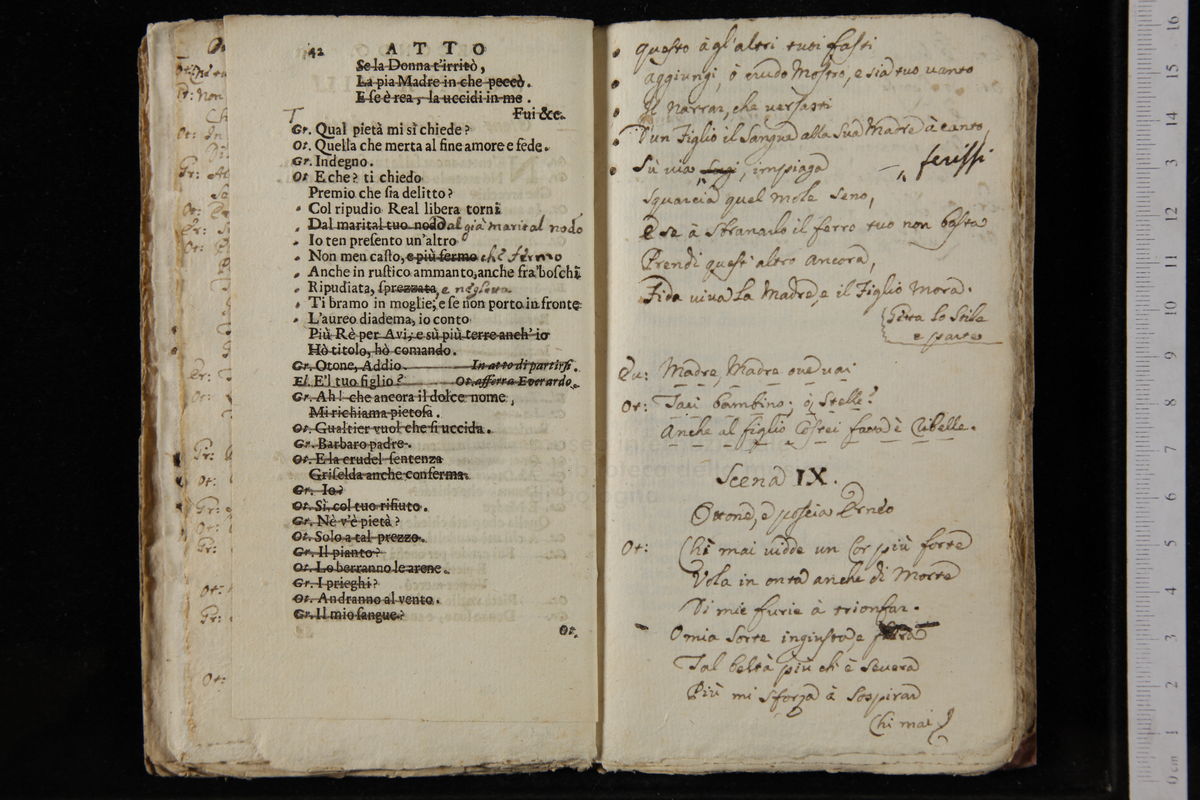 42 ATTO
Se la Donna t'irritò,
La pia Madre in che peccò.
E se è rea, la uccidi in me.
Fui &c.
Gr. Qual pietà mi sì chiede?
Ot. Quella che merta al fine amore e fede.
Gr. Indegno.
Ot E che? ti chiedo
Premio che sia delitto?
Col ripudio Real libera torni
Dal marital tuo nodo al già marital nodo
Io ten presento un'altro
Non men casto, e più fermo che fermo
Anche in rustico ammanto, anche fra' boschi
Ripudiata, sprezzata, e negletta
Ti bramo in moglie; e se non porto in fronte
L'aureo diadema, io conto
Più Rè per Avi, e sù più terre anch' io
Hò titolo, hò comando.
Gr. Otone, Addio. In atto di partirsi.
El. E'l tuo figlio? Ot. afferra Everardo.
Gr. Ah! che ancora il dolce nome,
Mi richiama pietosa.
Ot. Gualtier vuol che si uccida.
Gr. Barbaro padre.
Ot. E la crudel sentenza
Griselda anche conferma.
Gr. Io?
Ot. Sì, col tuo rifiuto.
Gr. Nè v'è pietà?
Ot. Solo a tal prezzo.
Gr. Il pianto?
Ot. Lo berranno le arene.
Gr. I prieghi?
Ot. Andranno al vento.
Gr. Il mio sangue?
Ot.
questo à gl'altri tuoi fasti
aggiungi, ò crudo Mostro, e sia tuo vanto
Il narrar, che versasti
D'un Figlio il Sangue alla Sua Madre à canto,
Sù via, impiaga ferissi
squarcia quel mole seno,
E se à sbranarlo il ferro tuo non basta
Prendi quest'altro ancora,
Fida viva La Madre, e il Figlio mora.
Getta lo Stile
e parte
Ev: Madre, Madre ove vai
Ot: Taci bambino; ò Stelle!
Anche al figlio Costei farà è Rubelle.
Scena IX.
Ottone, e poscia Ernéo
Ot: Chi mai vidde un Cor più forte
Vola in onta anche di Morte
Di mie furie à trionfar.
O mia sorte ingiusta, e
Tal beltà più ch'è severa
Più mi sforza à sospirar
Chi mai